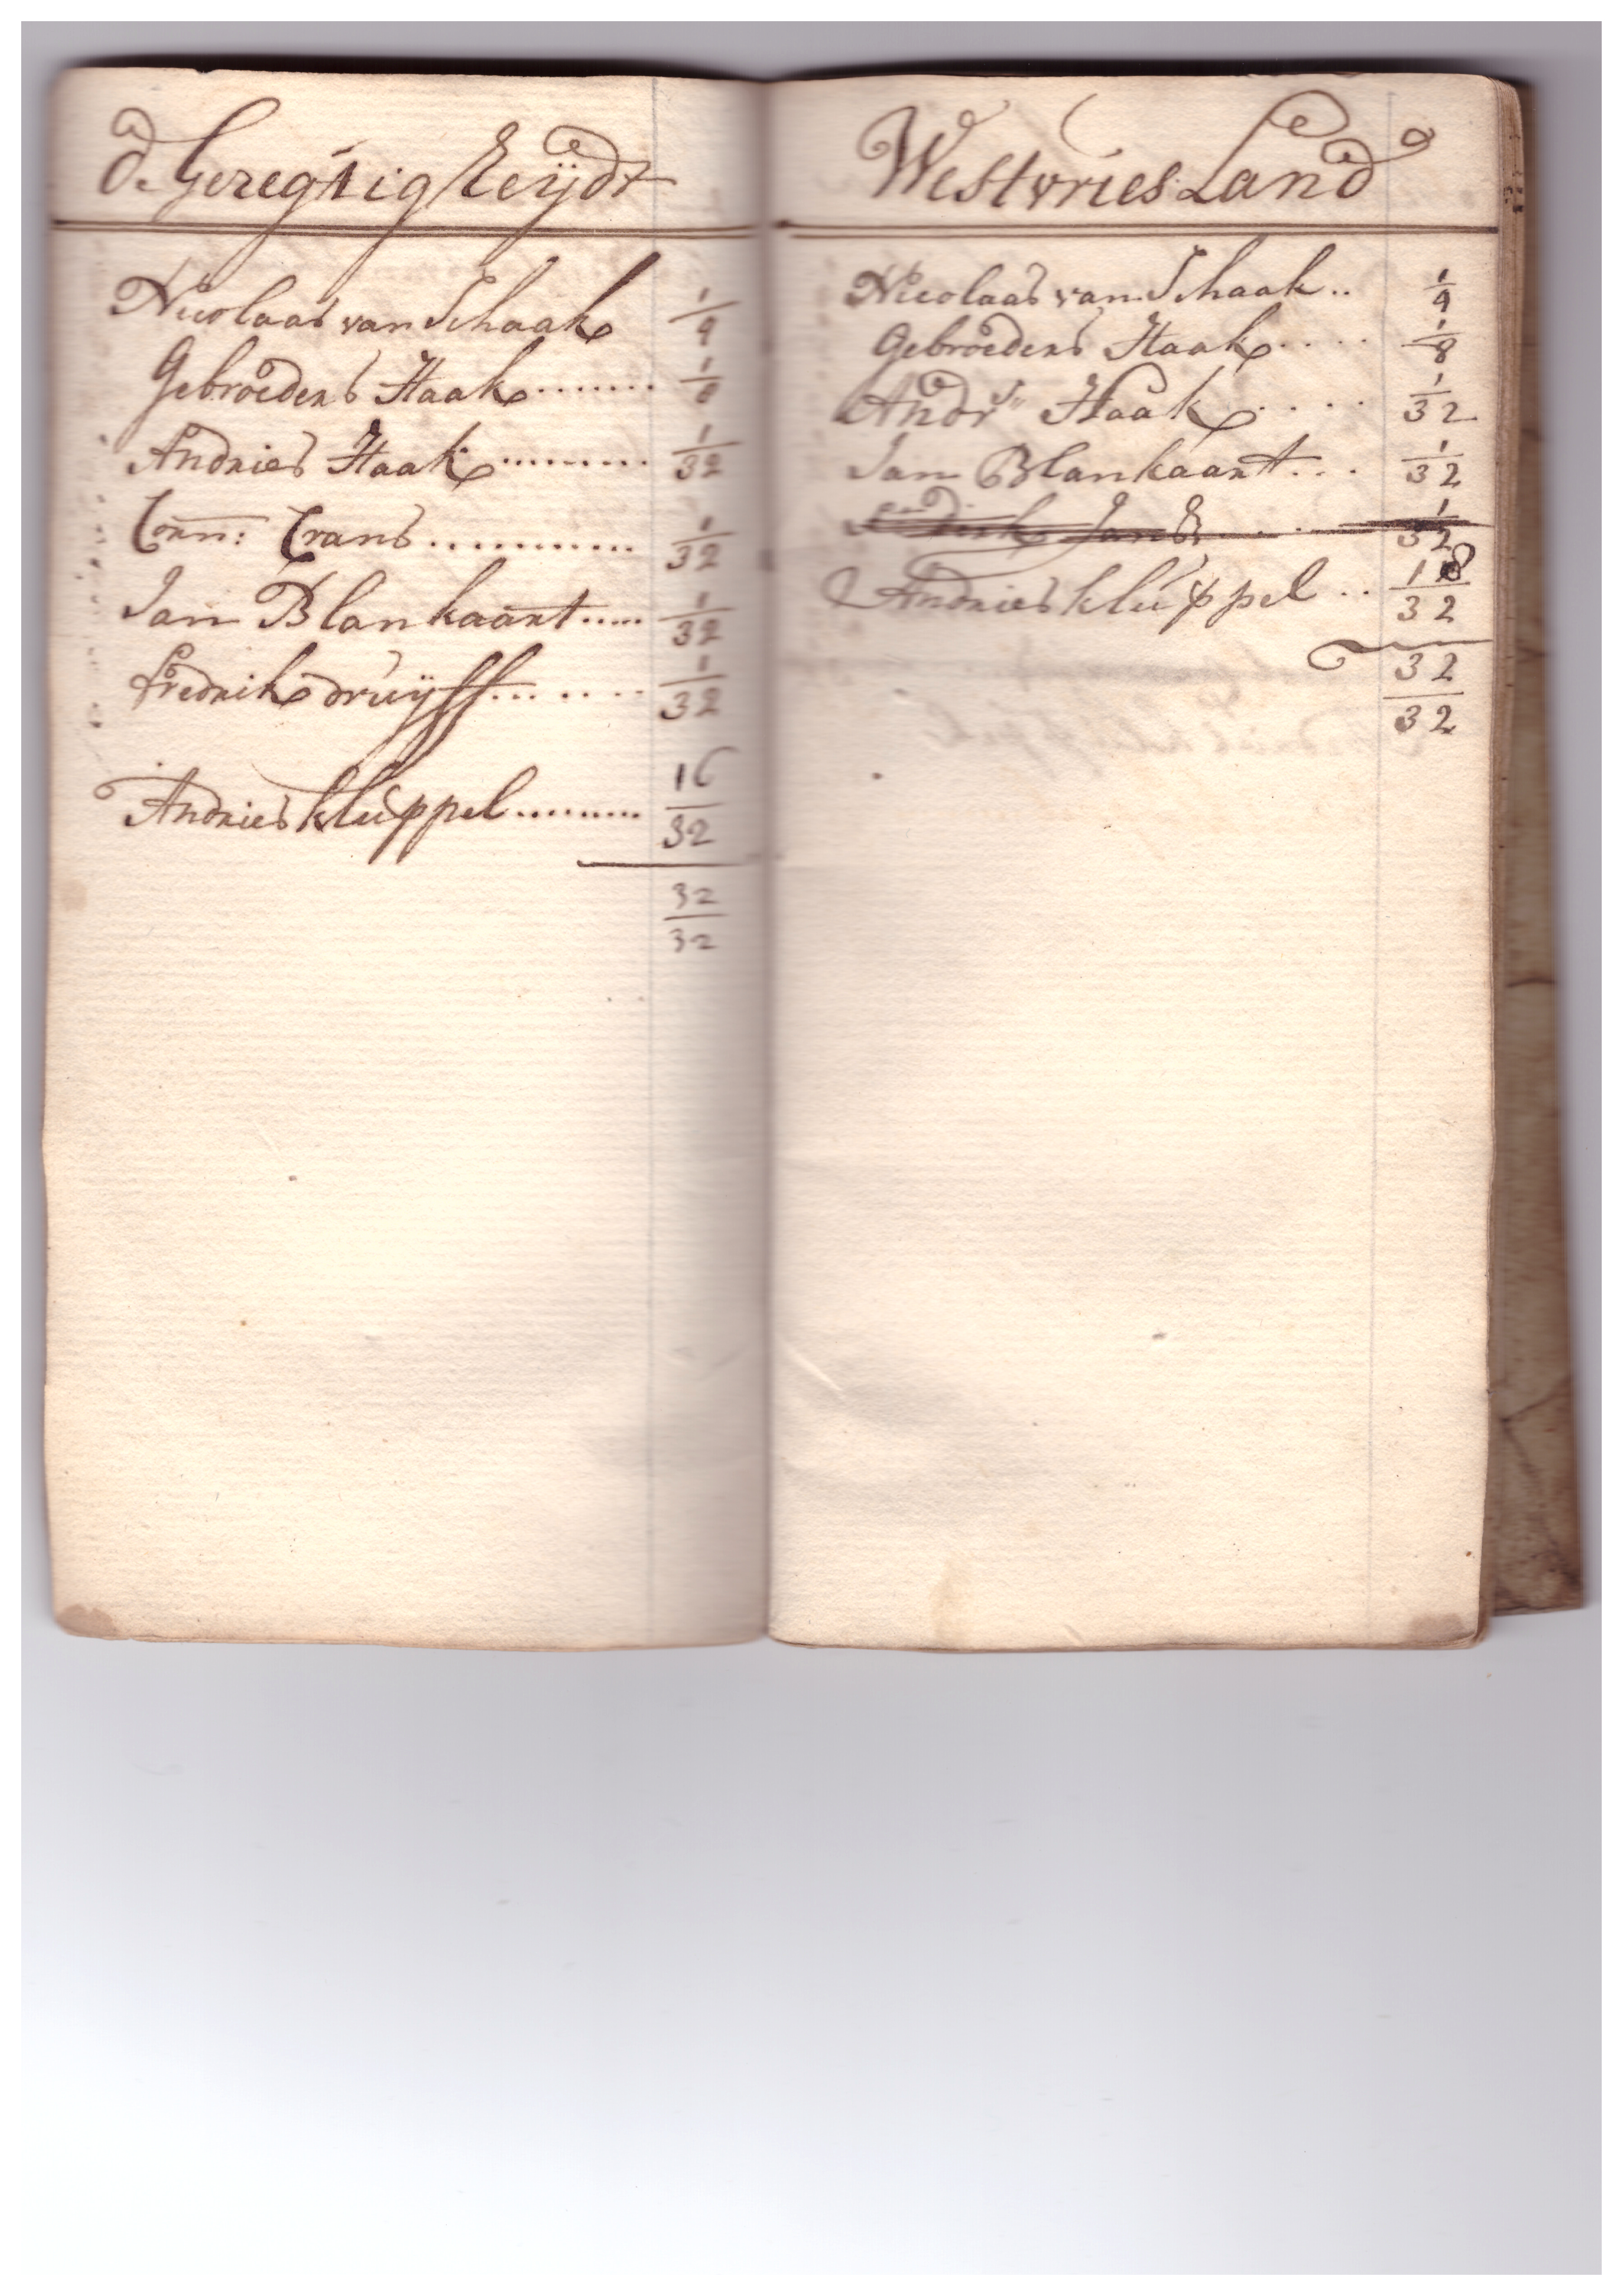 de Geregtigkeijdt
Nicolaas van Schaak 1/4
Gebroeders Haak........ 1/8
Andries Haak.......... 1/32
Corn: Crans............ 1/32
Jan Blankaart..... 1/32
Fredrik druijff........ 1/32
Andries kluppel......... 16/32
32/32
WestvriesLand
Nicolaas van Schaak.. 1/4
Gebroeders Haak.... 1/8
Andrs Haak.... 1/32
Jan Blankaart... 1/32
Dirk Jans 1/32
Andries kluppel.. 18/32
32/32